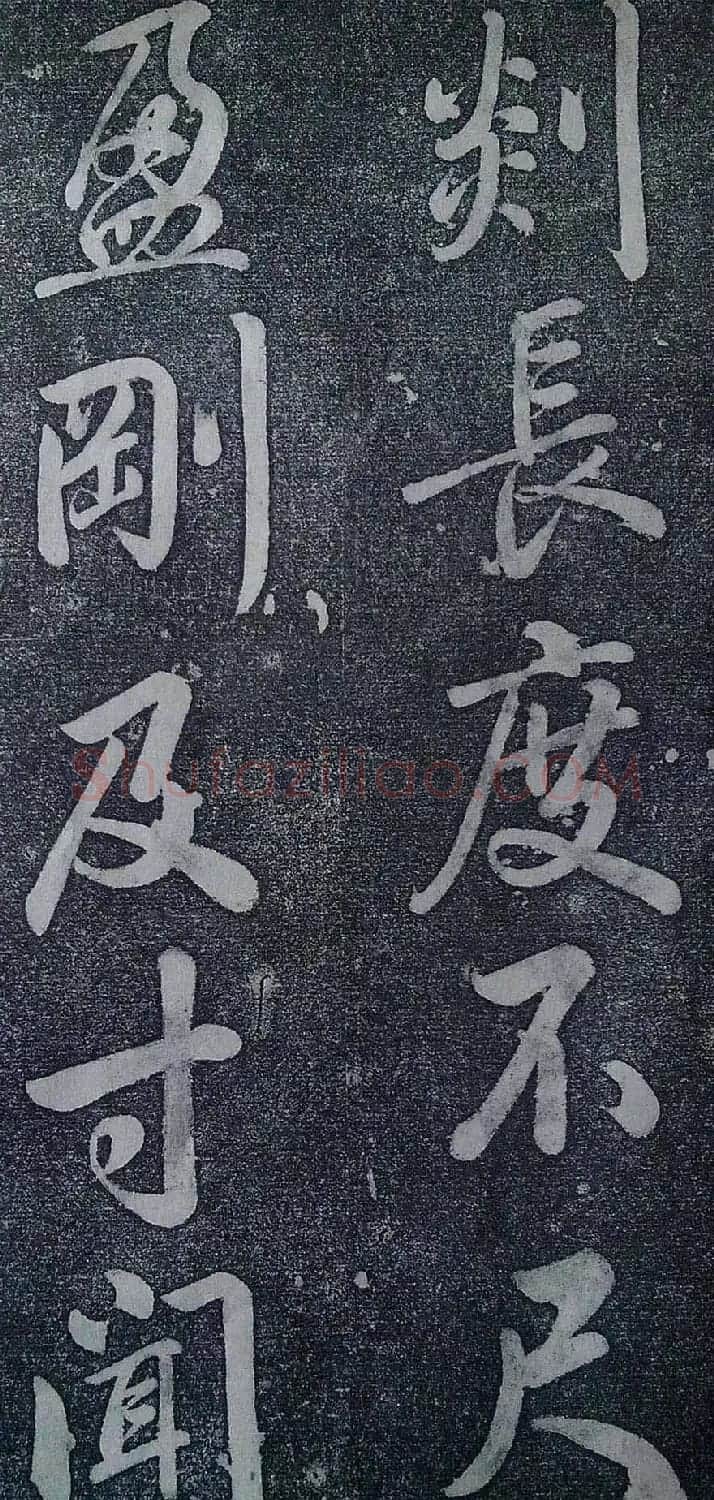 剡長度不尺
盈剛及寸聞
Shufaziliao.COM